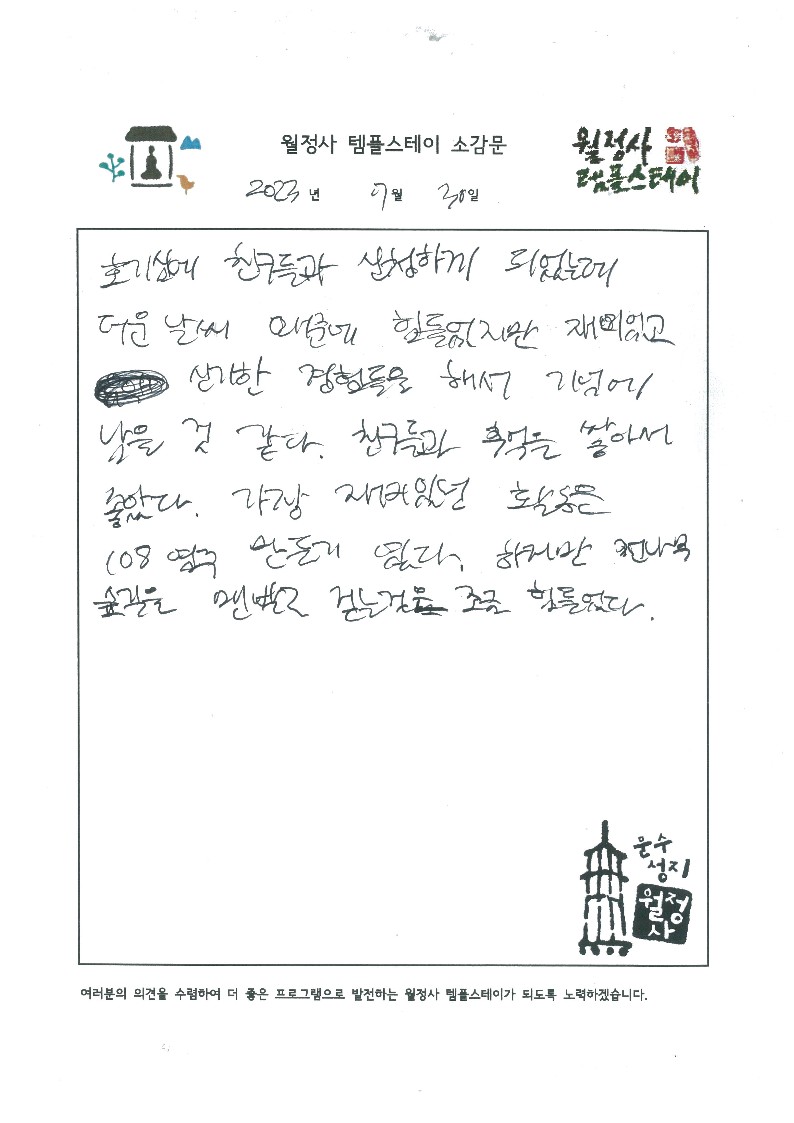 월정사 템플스테이 소감문
월정사
템플스테이
2023년 7월 30일
호기심에 친구들과 신청하게 되었는데
더운 날씨 때문에 힘들었지만 재미있고
신기한 경험들을 해서 기억에
남을 것 같다. 친구들과 추억을 쌓아서
좋았다. 가장 재미있던 활동은
108 염주 만들기 였다. 하지만 전나무
숲길을 맨발로 걷는것은 조금 힘들었다.
문수
성지
월정
사
여러분의 의견을 수렴하여 더 좋은 프로그램으로 발전하는 월정사 템플스테이가 되도록 노력하겠습니다.